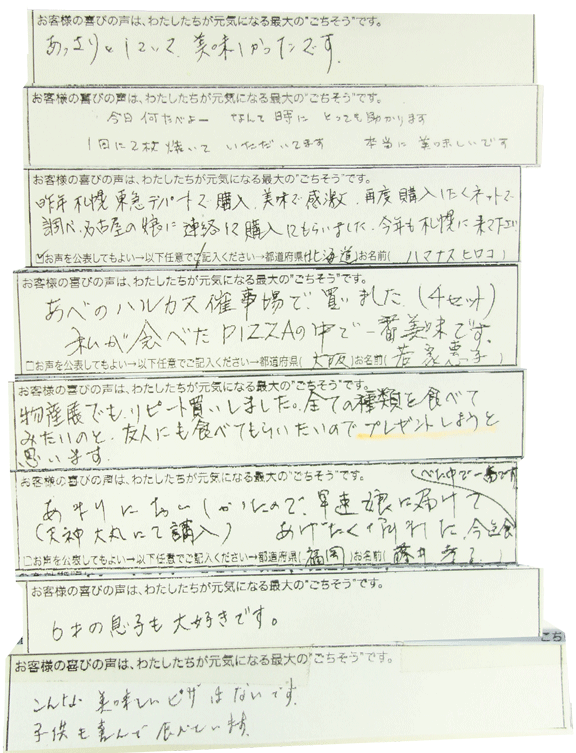 お客様の喜びの声は、わたしたちが元気になる最大の"ごちそう"です。
あっさりとしていて、美味しかったです。
お客様の喜びの声は、わたしたちが元気になる最大の"ごちそう"です。
今日何たべよー なんて時に とっても助かります
1回に2枚焼いて いただいてます 本当に美味しいです
お客様の喜びの声は、わたしたちが元気になる最大の"ごちそう"です。
昨年札幌東急デパートで購入、美味で感激、再度購入したくネットで
調べ、名古屋の娘に連絡して購入してもらいました、今年も札幌に来て下さい
お声を公表してもよい→以下任意でご記入ください→都道府県(北海道)お名前(ハマナスヒロコ)
お客様の喜びの声は、わたしたちが元気になる最大の"ごちそう"です。
あべのハルカス催事場で、買いました(4セット)
私が食べたPIZZAの中で一番美味です。
□お声を公表してもよい→以下任意でご記入ください→都道府県(大阪)お名前(
お客様の喜びの声は、わたしたちが元気になる最大の"ごちそう"です。
物産展でも、リピート買いしました。全ての種類を食べて
みたいのと、友人にも食べてもらいたいのでプレゼントしようと
思います。
お客様の喜びの声は、わたしたちが元気になる最大の"ごちそう"です。
あまりにおいしかったので、早速娘に届けて
(天神大丸にて購入) あげたく 今迄食
べた中で一番です
□お声を公表してもよい→以下任意でご記入ください→都道府県(福岡)お名前(藤井
お客様の喜びの声は、わたしたちが元気になる最大の"ごちそう"です。
6才の息子も大好きです。
ごち
お客様の喜びの声は、わたしたちが元気になる最大の"ごちそう"です。
こんな美味しいピザはないです。
子供も喜んで食べています。